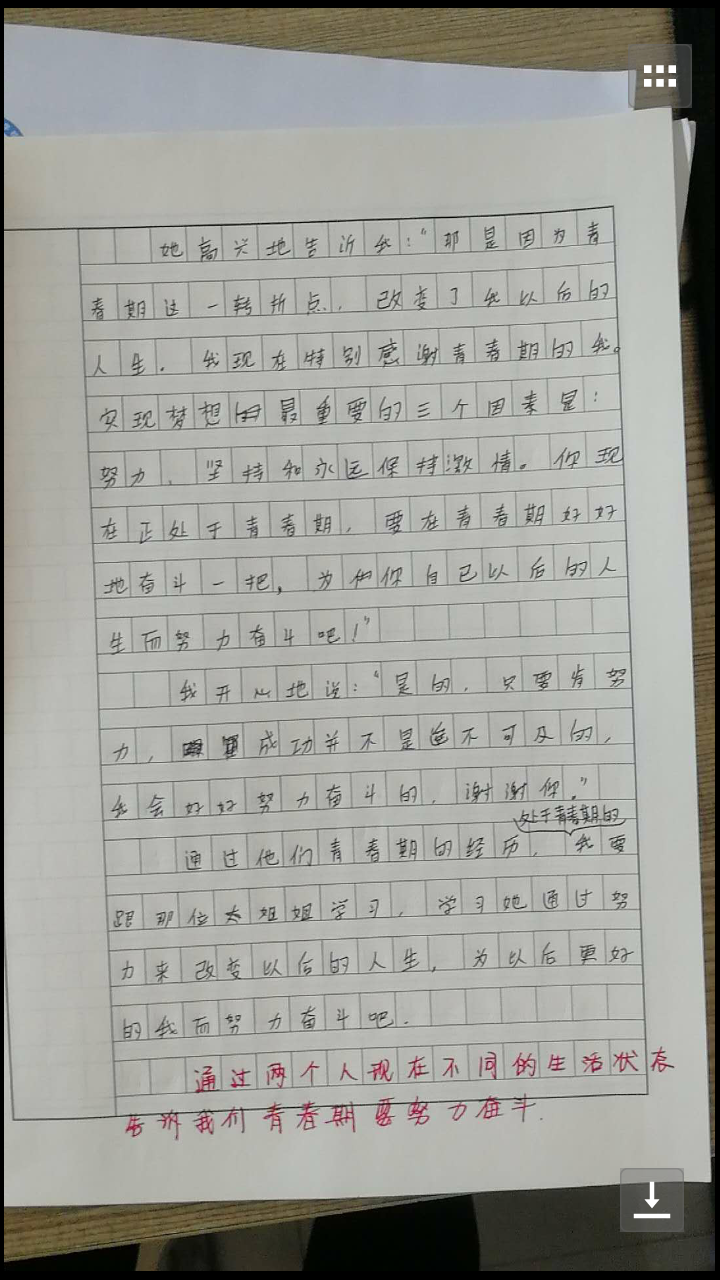 她高兴地告诉我：“那是因为青
春期这一转折点，改变了我以后的
人生。我现在特别感谢青春期的我。
实现梦想的最重要的三个因素是：
努力、坚持和永远保持激情。你现
在正处于青春期，要在青春期好好
地奋斗一把，为你自己以后的人
生而努力奋斗吧！”
我开心地说：“是的，只要肯努
力，成功并不是遥不可及的，
我会好好努力奋斗的，谢谢你。”
处于青春期的
通过他们青春期的经历，我要
跟那位大姐姐学习，学习她通过努
力来改变以后的人生，为以后更好
的我而努力奋斗吧.
通过两个人现在不同的生活状态
告诉我们青春期要努力奋斗.